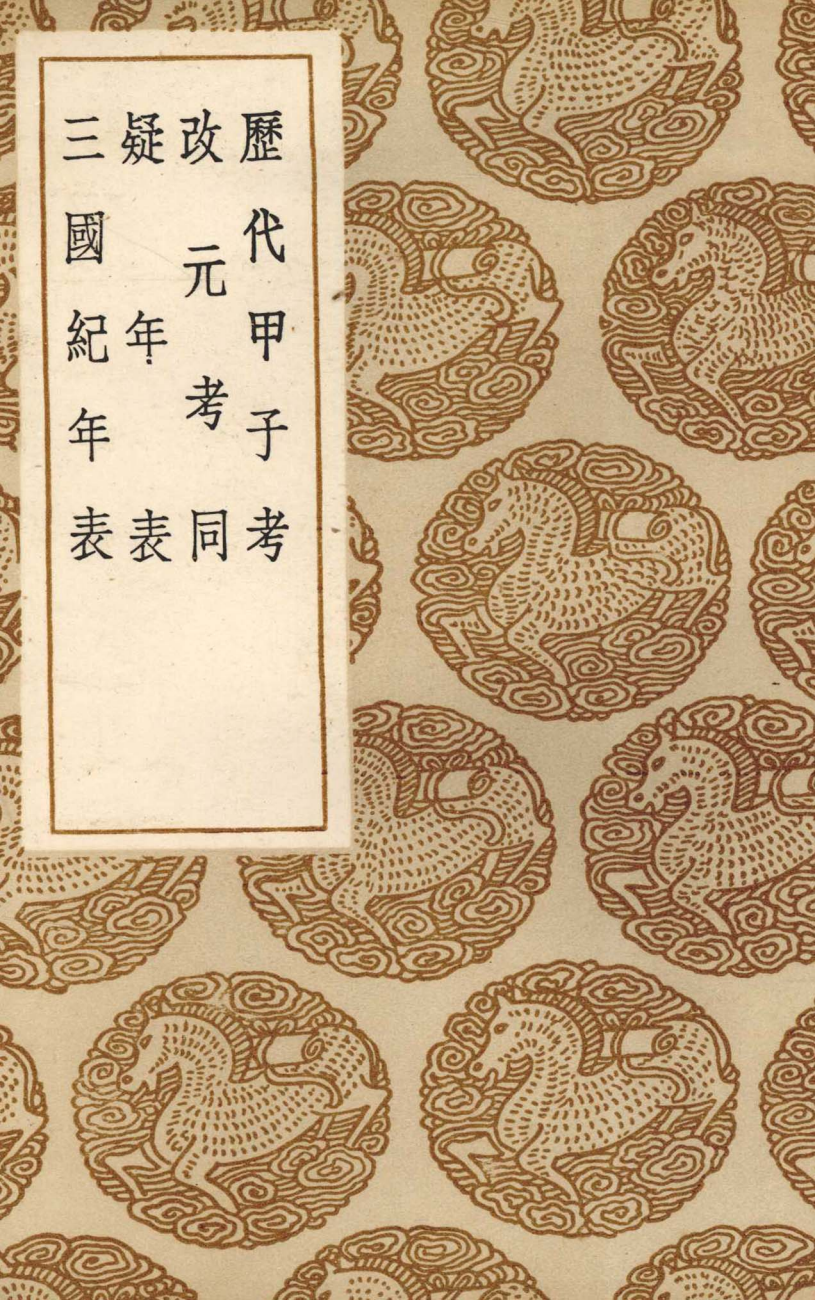 歷代甲子考
改元考同
疑年表
三國紀年表